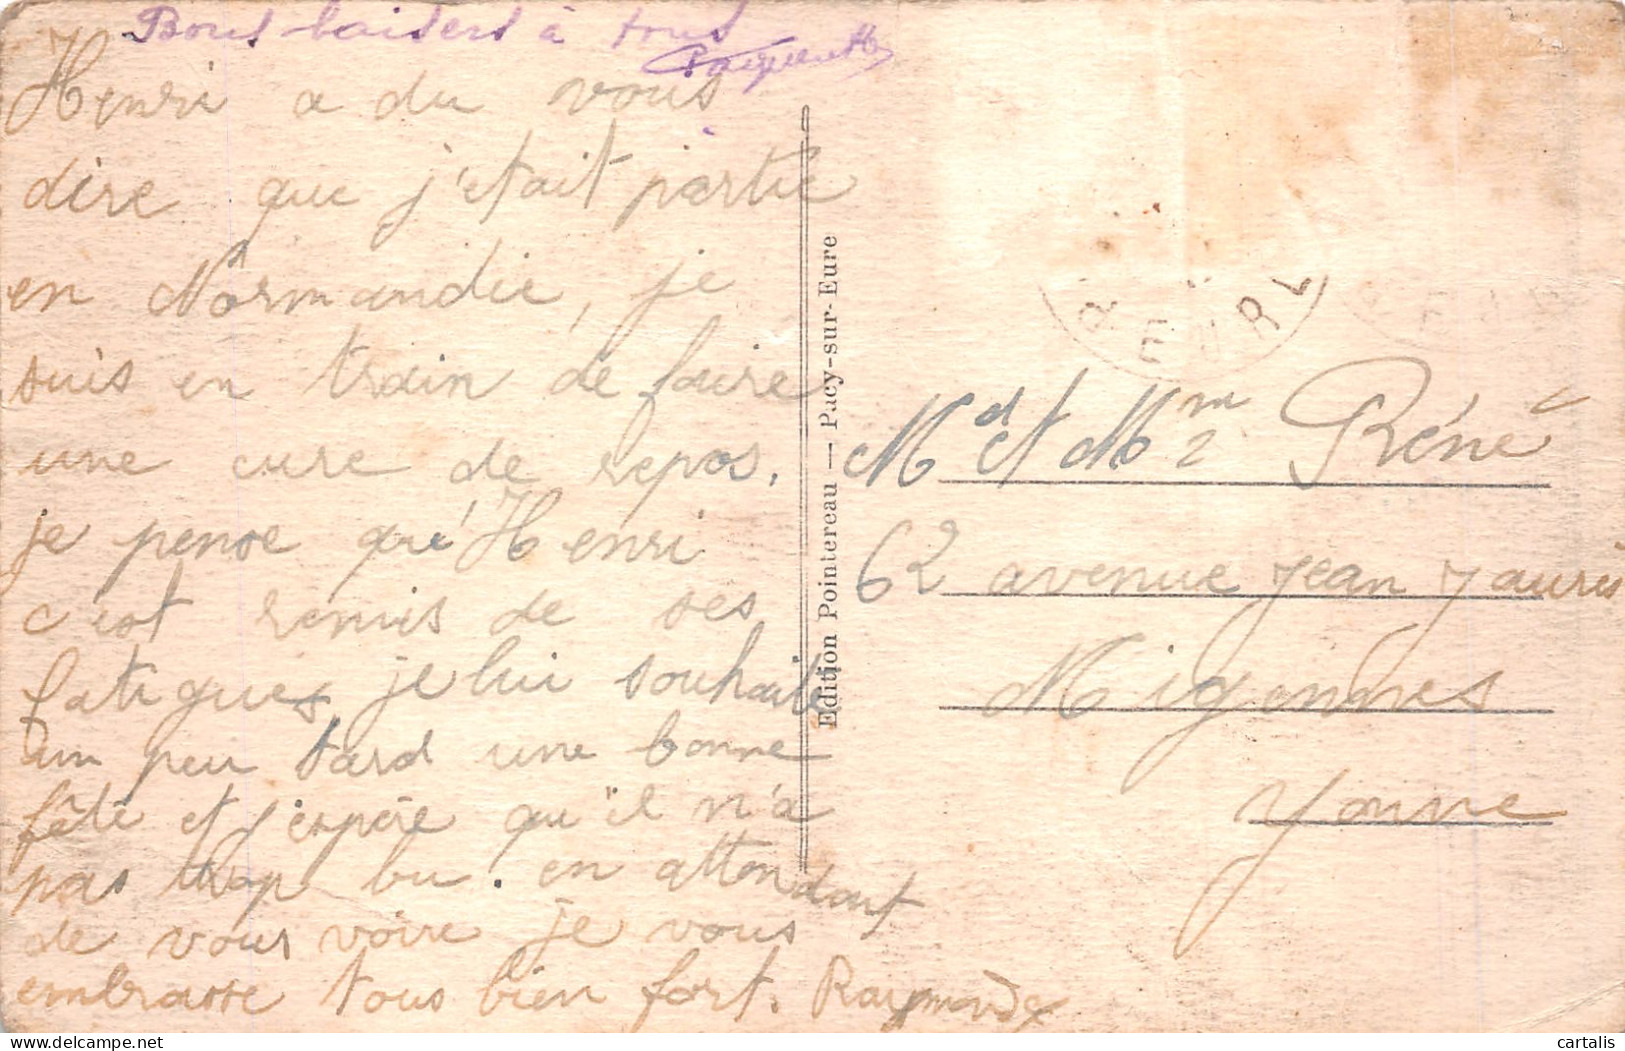 Bons baisers à tous
Henri a du vous
dire que j'etait partie
en Normandie, je
suis en train de faire
une cure de repos.
je pense que Henri
c'est remis de ses
fatigues, je lui souhaite
un peu tard une bonne
fête et j'espère qu'il n'a
pas trop bu. en attendant
de vous voire je vous
embrasse tous bien fort. Raymonde
Edition Pointereau — Pacy-sur-Eure
EURE
Md et Mm René
62 avenue Jean Jaurès
Migennes
Yonne
cartalis
delcampe.net